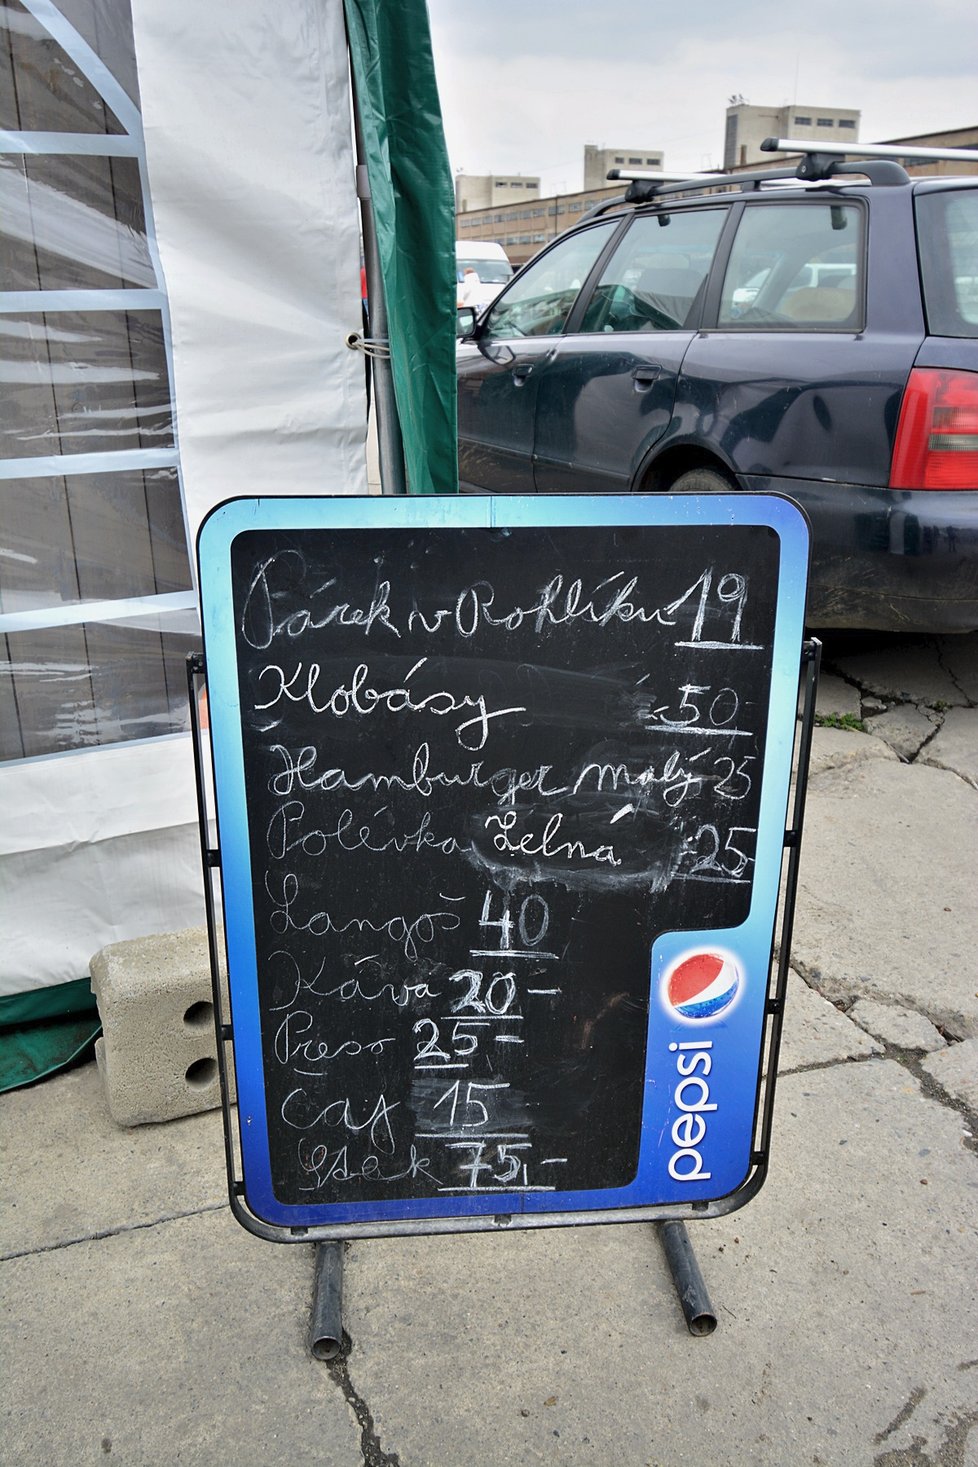 Párek v Rohlíku 19
Klobásy 50-
Hamburger malý 25
Polévka Zelná 25
Langoš 40
Káva 20-
Preso 25-
Čaj 15
Stek 75,-
pepsi